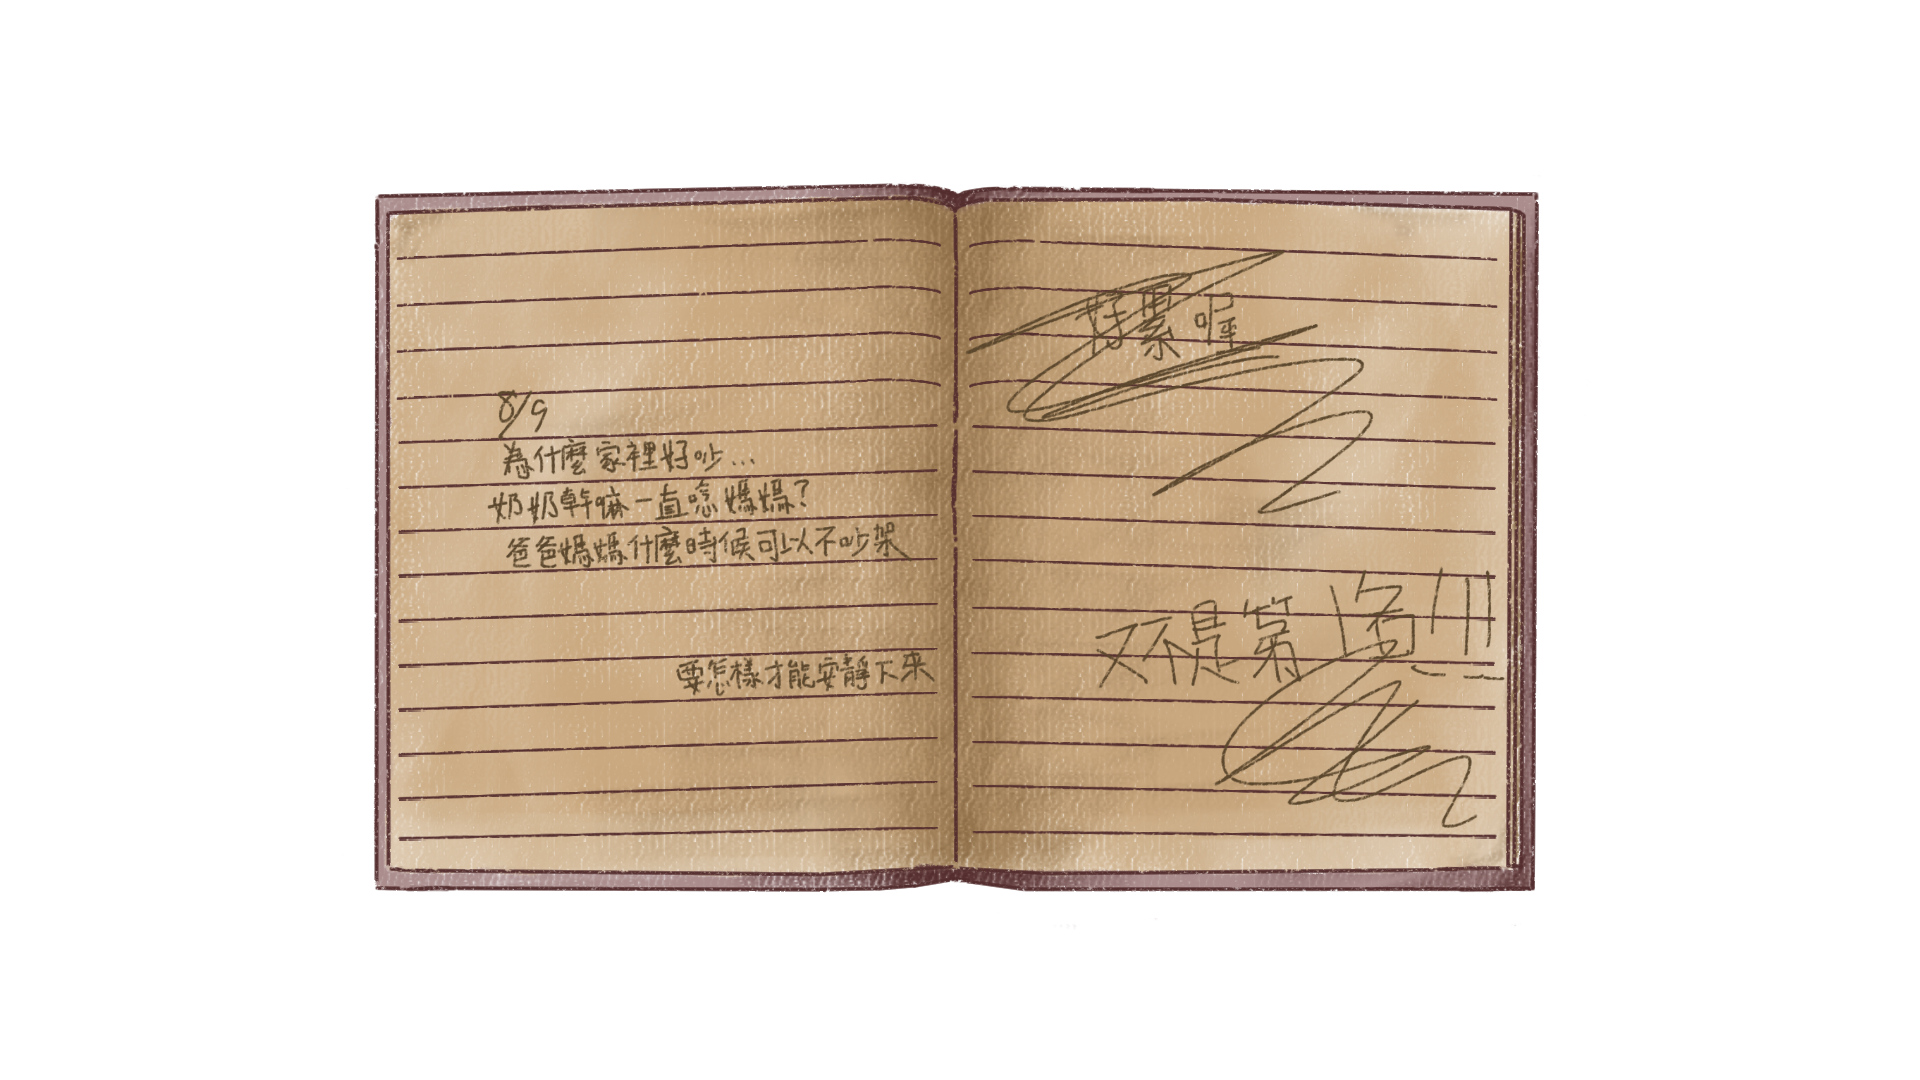 8/9
為什麼家裡好吵...
奶奶幹嘛一直唸媽媽?
爸爸媽媽什麼時候可以不吵架
要怎樣才能安靜下來
好累喔
又不是第